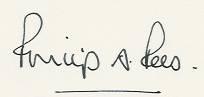 Philip A. Rees.